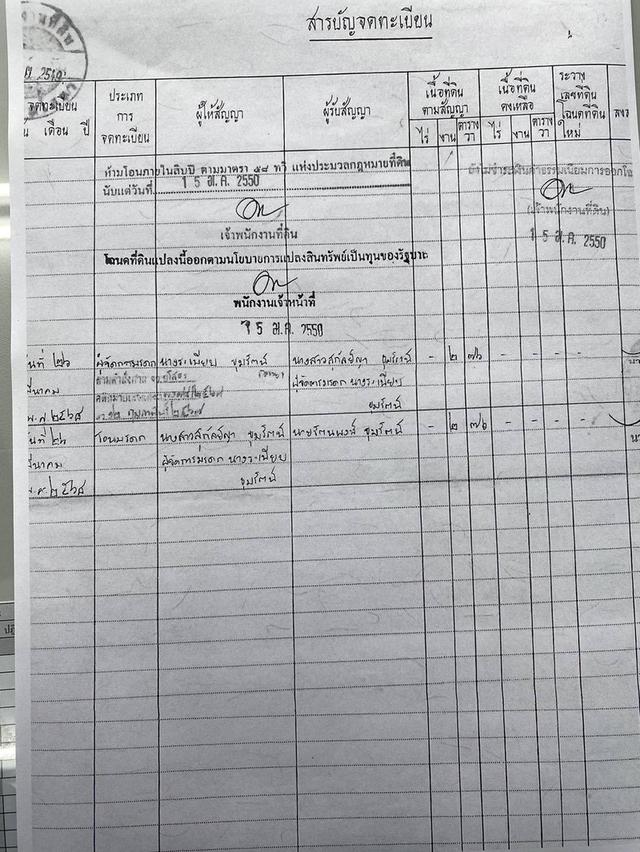 สารบัญจดทะเบียน
จดทะเบียน
เดือน ปี
ประเภท
การ
จดทะเบียน
ผู้ให้สัญญา
ผู้รับสัญญา
เนื้อที่ดิน
ตามสัญญา
ไร่ งาน ตาราง
วา
เนื้อที่ดิน
คงเหลือ
ไร่ งาน ตาราง
วา
ระวาง
เลขที่ดิน
โฉนดที่ดิน
ใหม่
ห้ามโอนภายในสิบปี ตามมาตรา ๕๘ ทวิ แห่งประมวลกฎหมายที่ดิน
นับแต่วันที่ 15 ส.ค. 2550
เจ้าพนักงานที่ดิน
(เจ้าพนักงานที่ดิน)
15 ส.ค. 2550
โฉนดที่ดินแปลงนี้ออกตามนโยบายการแปลงสินทรัพย์เป็นทุนของรัฐบาล
พนักงานเจ้าหน้าที่
15 ส.ค. 2550
ผู้จัดการมรดก นางระเบียบ ชุมรัตน์ นางสาวสุกัลย์ญา ชุมรัตน์ - ๒ ๗๖ - - -
มีนาคม ผู้จัดการมรดก นางระเบียบ
พ.ศ. ๒๕๖๘ ชุมรัตน์
โอนมรดก นางสาวสุกัลย์ญา ชุมรัตน์ นายรัตนพงษ์ ชุมรัตน์ - ๒ ๗๖ - - -
มีนาคม ผู้จัดการมรดก นางระเบียบ
พ.ศ. ๒๕๖๘ ชุมรัตน์